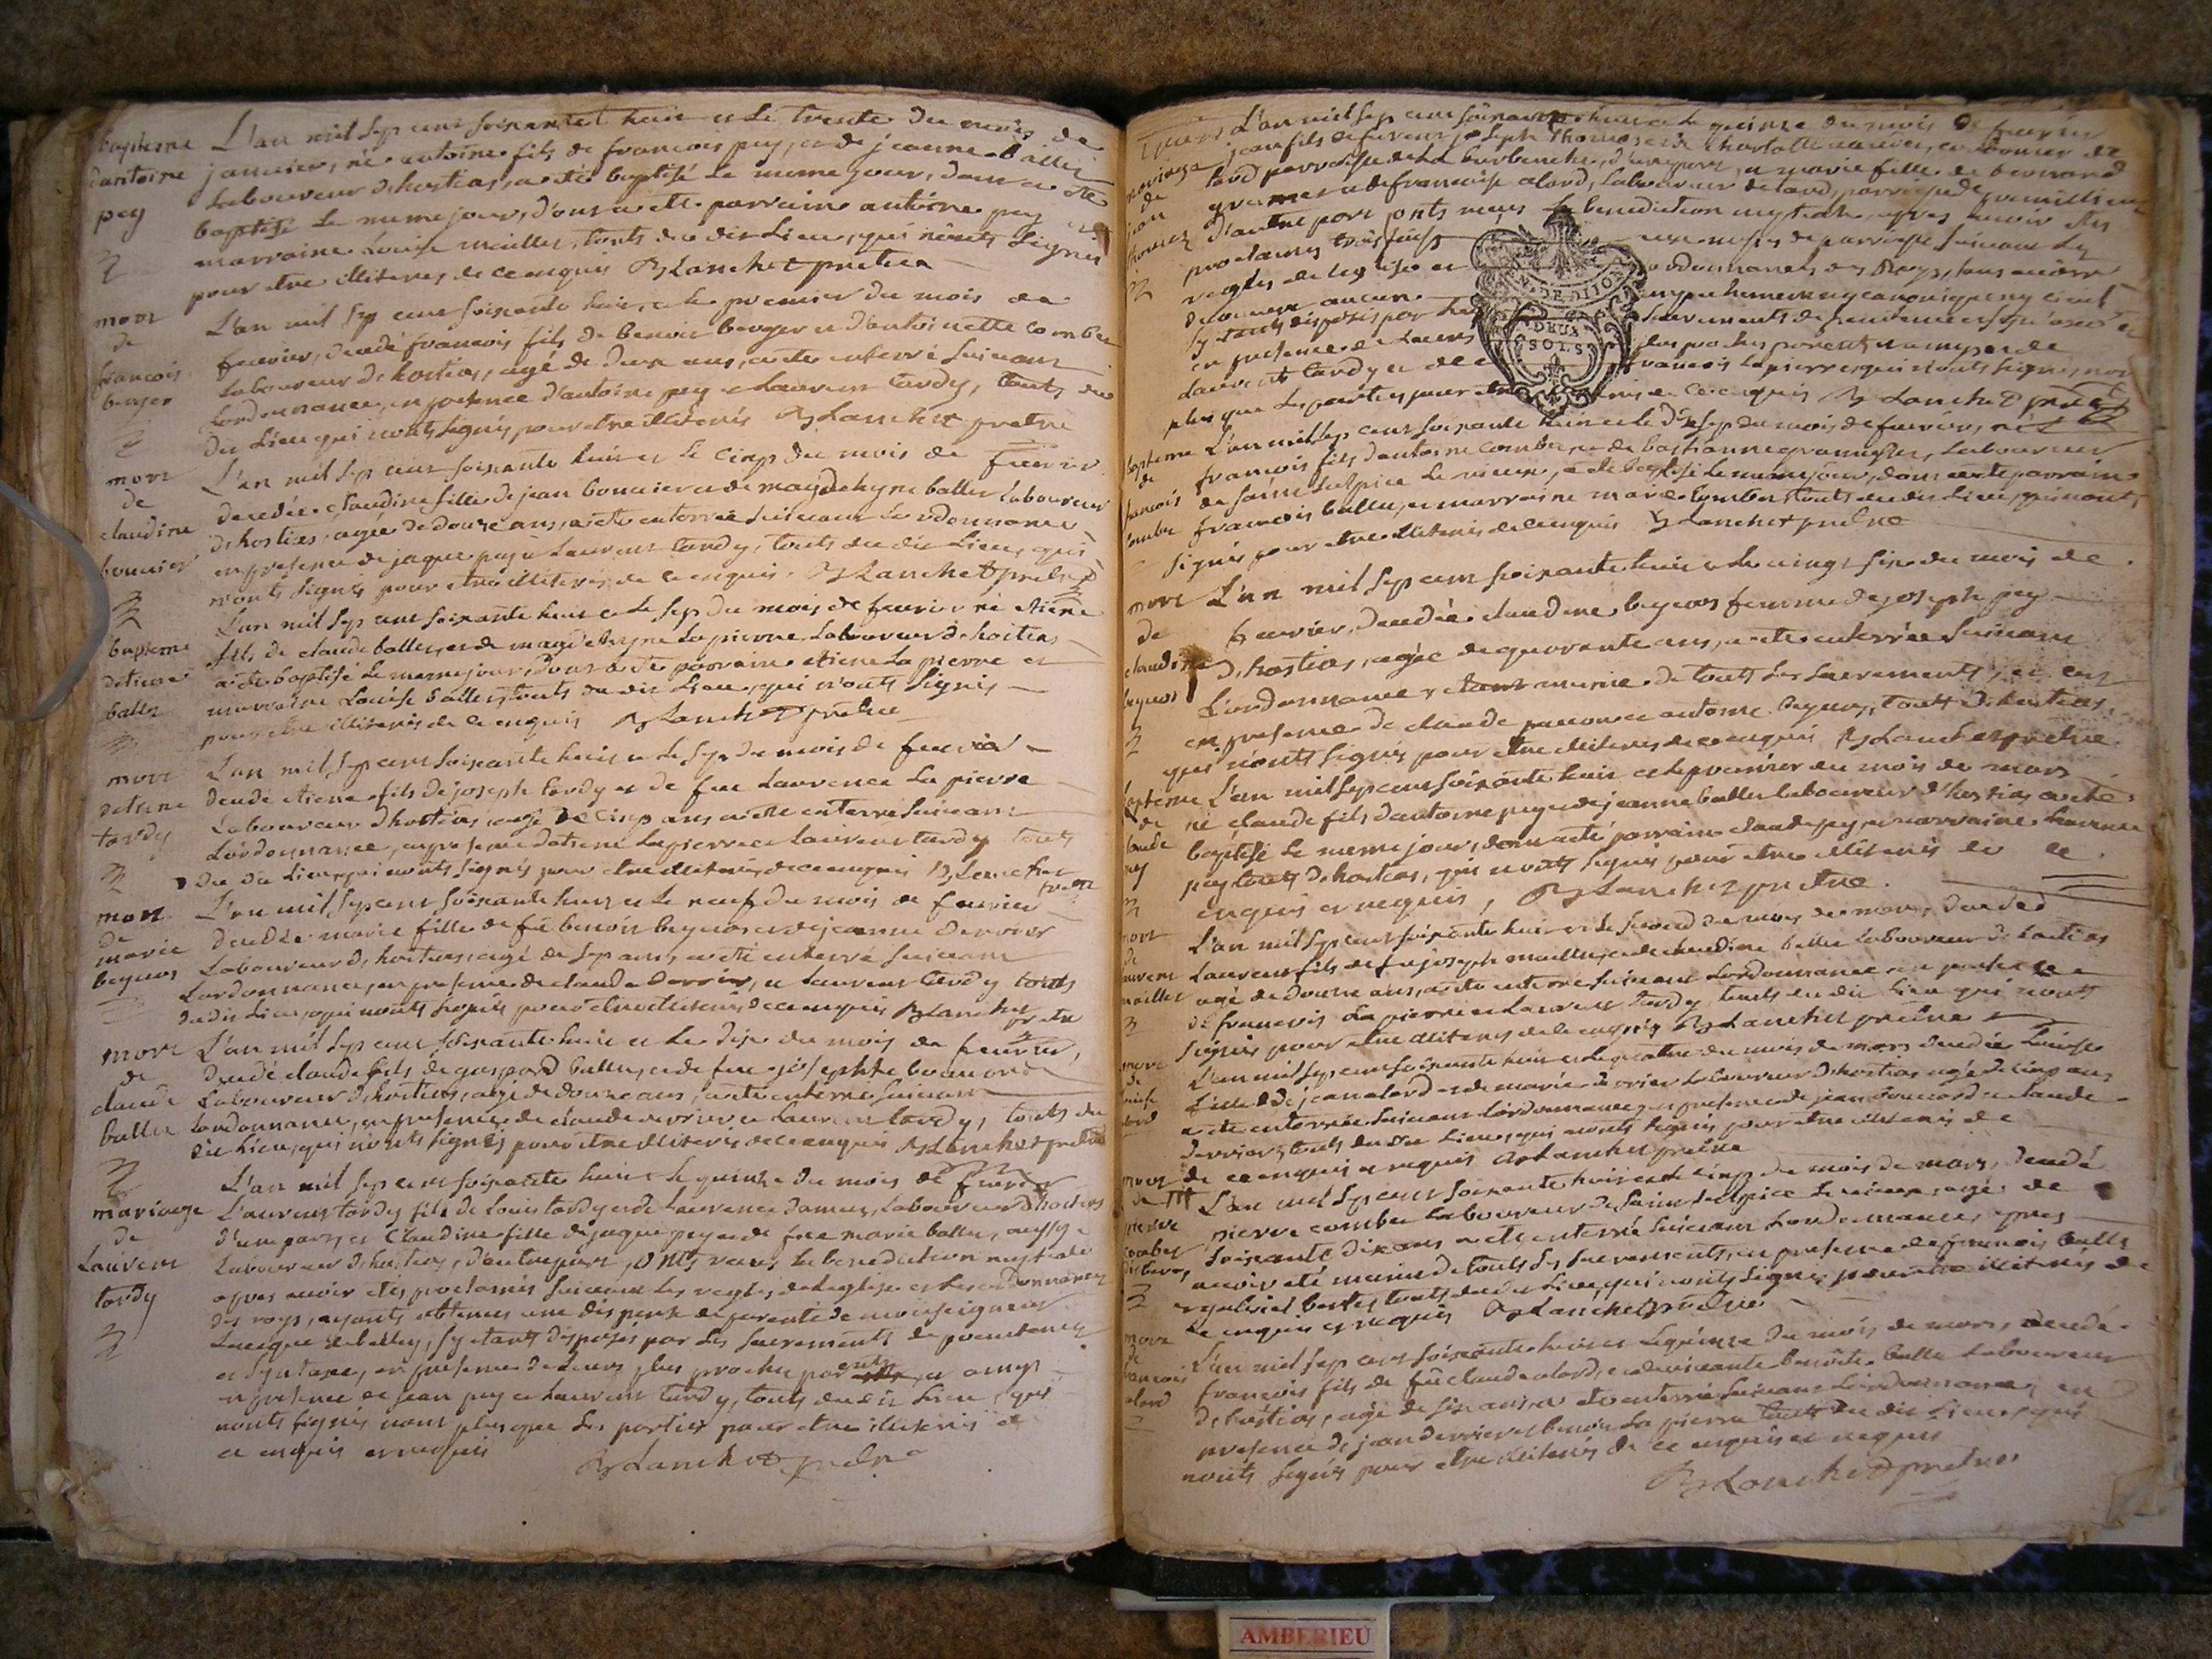 baptesme L'an mil sept cent soixante et huit et le trente du mois de
dantoine janvier, né antoine fils de francois pey, et de jeanne ballet
pey laboureur d'hostias, a été baptisé le meme jour, dont a été
baptisé le meme jour, dont a été parrain antoine pey et
marraine Louise maillet, touts du dit Lieu, qui n'onts signés
pour etre illiteres de ce enquis Blanchet pretre
mort L'an mil sept cent soixante huit, et le premier du mois de
de fevrier, decedé francois fils de benoit berger et d'antoinette combet
francois laboureur d'hostias, agé de deux ans, a ete enterré suivant
berger Lordonnance, en presence d'antoine pey et Laurent tardy, touts du
dit Lieu qui n'onts signés pour etre illiterés Blanchet pretre
mort L'an mil sept cent soixante huit et le cinq du mois de fevrier
de decedée claudine fille de jean bouvier et de magdeleyne ballet laboureur
claudine d'hostias, agée de douze ans, a ete enterrée suivant Lordonnance
bouvier en presence de jaque pey et Laurent tardy, touts du dit Lieu, qui
n'onts signés pour etre illiterés de ce enquis Blanchet pretre
L'an mil sept cent soixante huit et le sept du mois de fevrier né etiene
baptesme fils de claude ballet, et de magdeleyne Lapierre laboureur d'hostias
detiene a été baptisé le meme jour, dont a été parrain etiene La pierre et
ballet marraine Louise ballet, touts du dit Lieu, qui n'onts signés
pour etre illiterés de ce enquis Blanchet pretre
mort L'an mil sept cent soixante huit et le sept du mois de fevrier
detiene decedé etiene fils de joseph tardy et de feue Laurence La pierre
tardy Laboureur d'hostias, agé de cinq ans a été enterré suivant
Lordonnance, en presence detiene Lapierre et Laurent tardy touts
du dit Lieu, qui n'onts signés pour etre illiterés de ce enquis Blanchet
pretre
mort L'an mil sept cent soixante huit et le neuf du mois de fevrier
de
marie decedée marie fille de feu benoit beguos et de jeanne Derrier
beguos Laboureur d'hostias, agé de sept ans, a été enterré suivant
Lordonnance, en presence de claude Derrier, et Laurent tardy touts
du dit Lieu, qui n'onts signés pour etre illiterés de ce enquis Blanchet
pretre
mort L'an mil sept cent soixante huit et le dix du mois de fevrier,
de decedé claude fils de gaspard ballet, et de feue josephte
claude Laboureur d'hostias, agé de douze ans, a ete enterré suivant
ballet Lordonnance, en presence de claude Derrier et Laurent tardy, touts du
dit Lieu, qui n'onts signés pour etre illiterés de ce enquis Blanchet pretre
L'an mil sept cent soixante huit et le quinze du mois de fevrier
mariage Laurent tardy fils de Louis tardy et de Laurence Laboureur d'hostias
de d'une part, et Claudine fille de jaque pey et de feue marie ballet, aussy
Laurent Laboureur d'hostias, d'autre part, onts receu la benediction nuptiale
tardy apres avoir etés proclamés suivant les regles de Leglise et les ordonnances
des roys, ayants obtenus une dispense de parenté de monseigneur
Leveque de belley, s'y etants disposés par les sacrements de penitence
et en presence de leurs plus proches parents, et amys
en presence de jean pey et Laurent tardy, touts du dit Lieu, qui
n'onts signés nont plus que les parties pour etre illiterés de
ce enquis et requis Blanchet pretre
L'an mil sept cent soixante et huit et le quinze du mois de fevrier
mariage jean fils de joseph Thomas et de charlotte laboureur de
de lard parroisse de La burbanche, d'une part, et marie fille de bernard
et de francoise alard, laboureur de lard, parroisse de
Thomas d'autre part onts receu la benediction nuptiale, apres avoir etés
proclamés trois fois de parroisse suivant les
regles de leglise et ordonnances des Roys, sans avoir
decouvert aucun empechement ny canonique ny civil
s'y etants disposés par les sacrements de penitence
en presence de leurs plus proches parents et amys et de
Laurent tardy et de francois Lapierre qui n'onts signés non
plus que les parties pour etre illiterés de ce enquis Blanchet pretre
baptesme L'an mil sept cent soixante huit et le dixsept du mois de fevrier, né
de francois fils d'antoine combet, et de laboureur
francois de saint sulpice le vieux, a ete baptisé le meme jour, dont a ete parrain
combet francois ballet, et marraine marie combet, touts du dit Lieu, qui n'onts
signés pour etre illiterés de ce enquis Blanchet pretre
mort L'an mil sept cent soixante huit et le vingt six du mois de
de fevrier, decedée claudine beguos femme de joseph pey
claudine d'hostias, agée de quarante ans, a ete enterrée suivant
beguos L'ordonnance, etant munie de touts les sacrements,
en presence de claude et antoine beguos, touts d'hostias,
qui n'onts signés pour etre illiterés de ce enquis Blanchet pretre
baptesme L'an mil sept cent soixante huit et le premier du mois de mars
de né claude fils d'antoine pey et de jeanne ballet laboureur d'hostias a ete
claude baptisé le meme jour, dont a eté parrain claude pey, et marraine Laurence
pey pey touts d'hostias, qui n'onts signés pour etre illiterés de ce
enquis et requis, Blanchet pretre.
mort L'an mil sept cent soixante huit et le second du mois de mars, decedé
de
Laurent Laurent fils de feu joseph maillet, et de claudine ballet laboureur d'hostias
maillet agé de douze ans, a ete enterré suivant Lordonnance en presence
de francois La pierre et Laurent tardy, touts du dit Lieu qui n'onts
signés pour etre illiterés de ce enquis Blanchet pretre
mort L'an mil sept cent soixante huit et le quatre du mois de mars decedée Louise
de
Louise fille de jean alard et de marie Derrier laboureur d'hostias agé de cinq ans
alard a ete enterrée suivant Lordonnance, en presence de jean et claude
Derrier, touts du dit Lieu, qui n'onts signés pour etre illiterés de
de ce enquis et requis Blanchet pretre
mort L'an mil sept cent soixante huit et le cinq du mois de mars, decedé
de
pierre pierre combet laboureur de saint sulpice le vieux, agé de
combet soixante dix ans a eté enterré suivant Lordonnance, apres
avoir eté munis de touts les sacrements, en presence de francois ballet
et gabriel touts du dit Lieu, qui n'onts signés pour etre illiterés de
ce enquis et requis Blanchet pretre
mort L'an mil sept cent soixante huit et le quinze du mois de mars, decedé
de
francois francois fils de feu claude alard, et benoite ballet laboureur
alard d'hostias, agé de six ans, a ete enterré suivant Lordonnance, en
presence de jean derrier et benoit La pierre touts du dit Lieu, qui
n'onts signés pour etre illiterés de ce enquis et requis
Blanchet pretre
DE DIJON
DEUX
SOLS
AMBERIEU